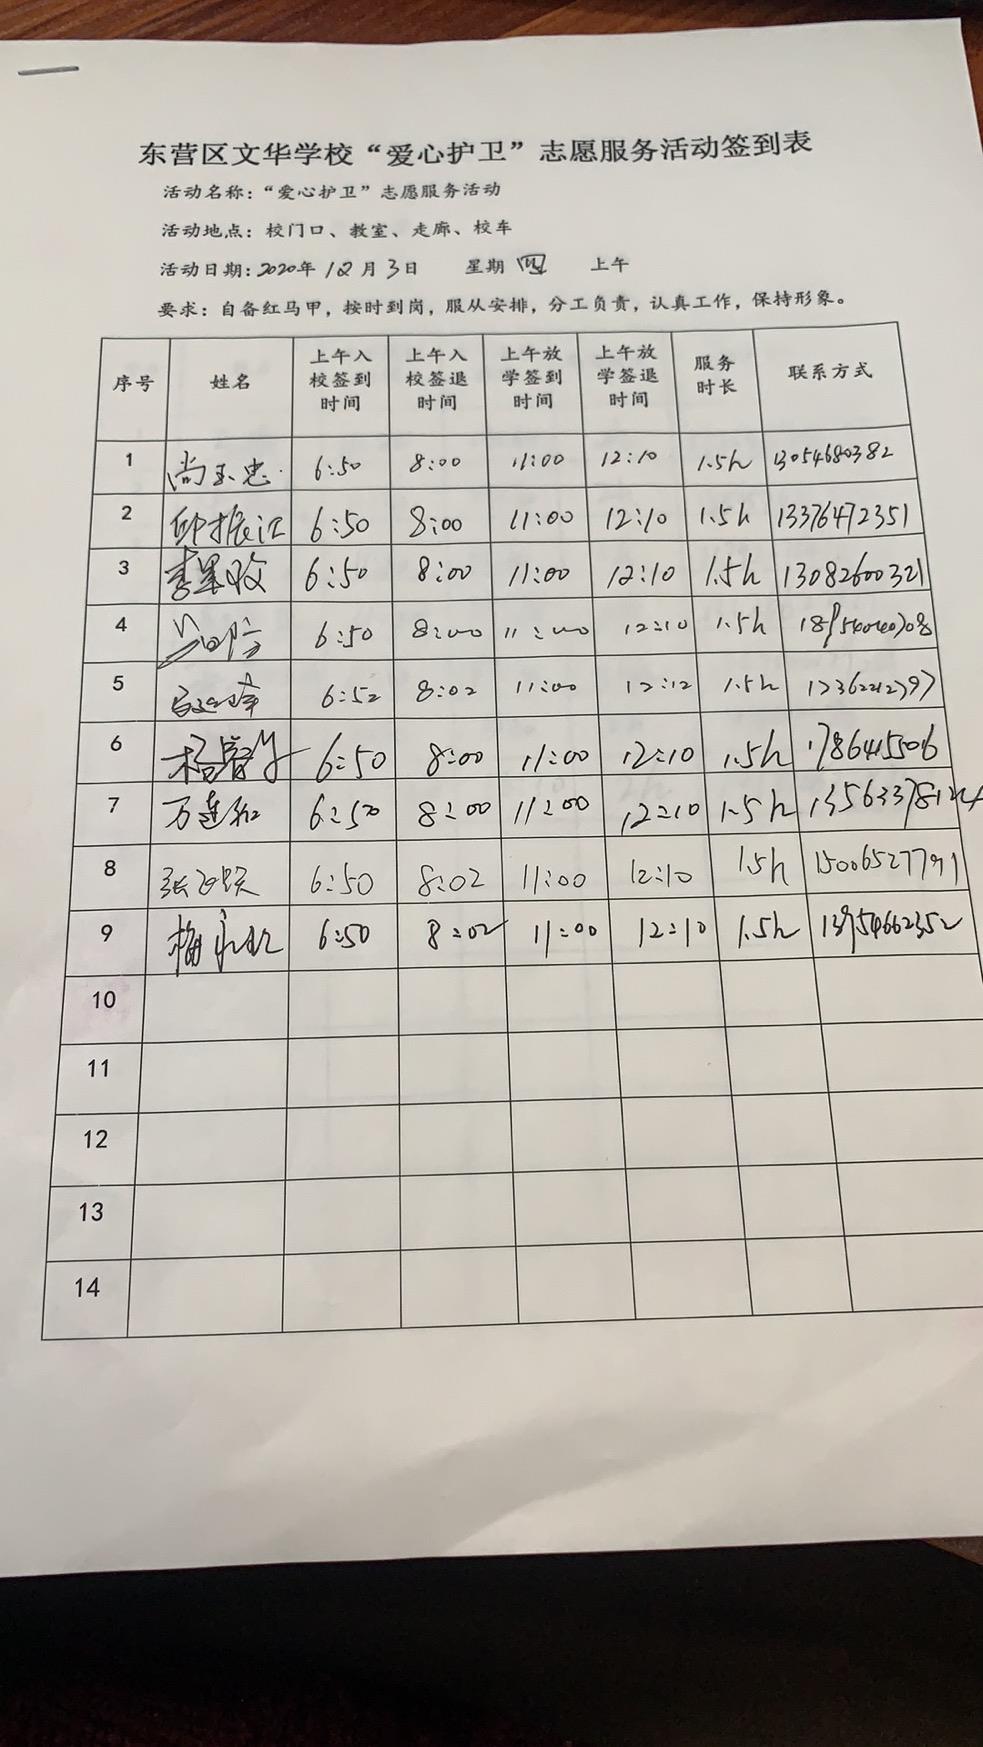 东营区文华学校“爱心护卫”志愿服务活动签到表
活动名称：“爱心护卫”志愿服务活动
活动地点：校门口、教室、走廊、校车
活动日期：2020年12月3日 星期四 上午
要求：自备红马甲，按时到岗，服从安排，分工负责，认真工作，保持形象。
序号 姓名 上午入校签到时间 上午入校签退时间 上午放学签到时间 上午放学签退时间 服务时长 联系方式
1 尚玉忠 6:50 8:00 11:00 12:10 1.5h 13054680382
2 6:50 8:00 11:00 12:10 1.5h 13376472351
3 6:50 8:00 11:00 12:10 1.5h 13082600321
4 6:50 8:00 11:00 12:10 1.5h
5 6:52 8:02 11:00 12:12 1.5h
6 6:50 8:00 11:00 12:10 1.5h
7 6:50 8:00 11:00 12:10 1.5h
8 张 6:50 8:02 11:00 12:10 1.5h 15006527791
9 梅 6:50 8:02 11:00 12:10 1.5h 13954662352
10
11
12
13
14